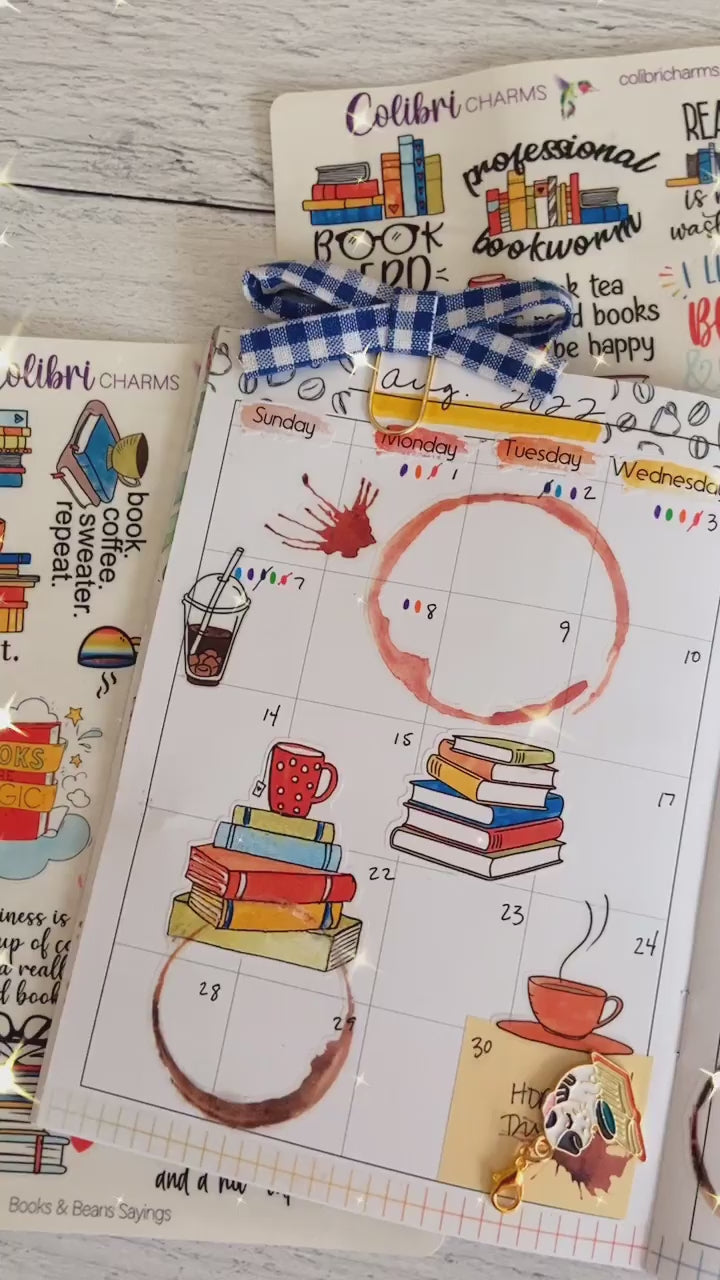 Colibri CHARMS
colibricharms
professional
bookworm
BOOK
tea
books
be happy
is
Colibri CHARMS
book.
coffee.
sweater.
repeat.
aug. 2022
Sunday
Monday
Tuesday
Wednesday
1
2
3
7
8
9
10
14
15
17
22
23
24
28
29
30
iness is
up of
a reall
d book
and a
Books & Beans Sayings